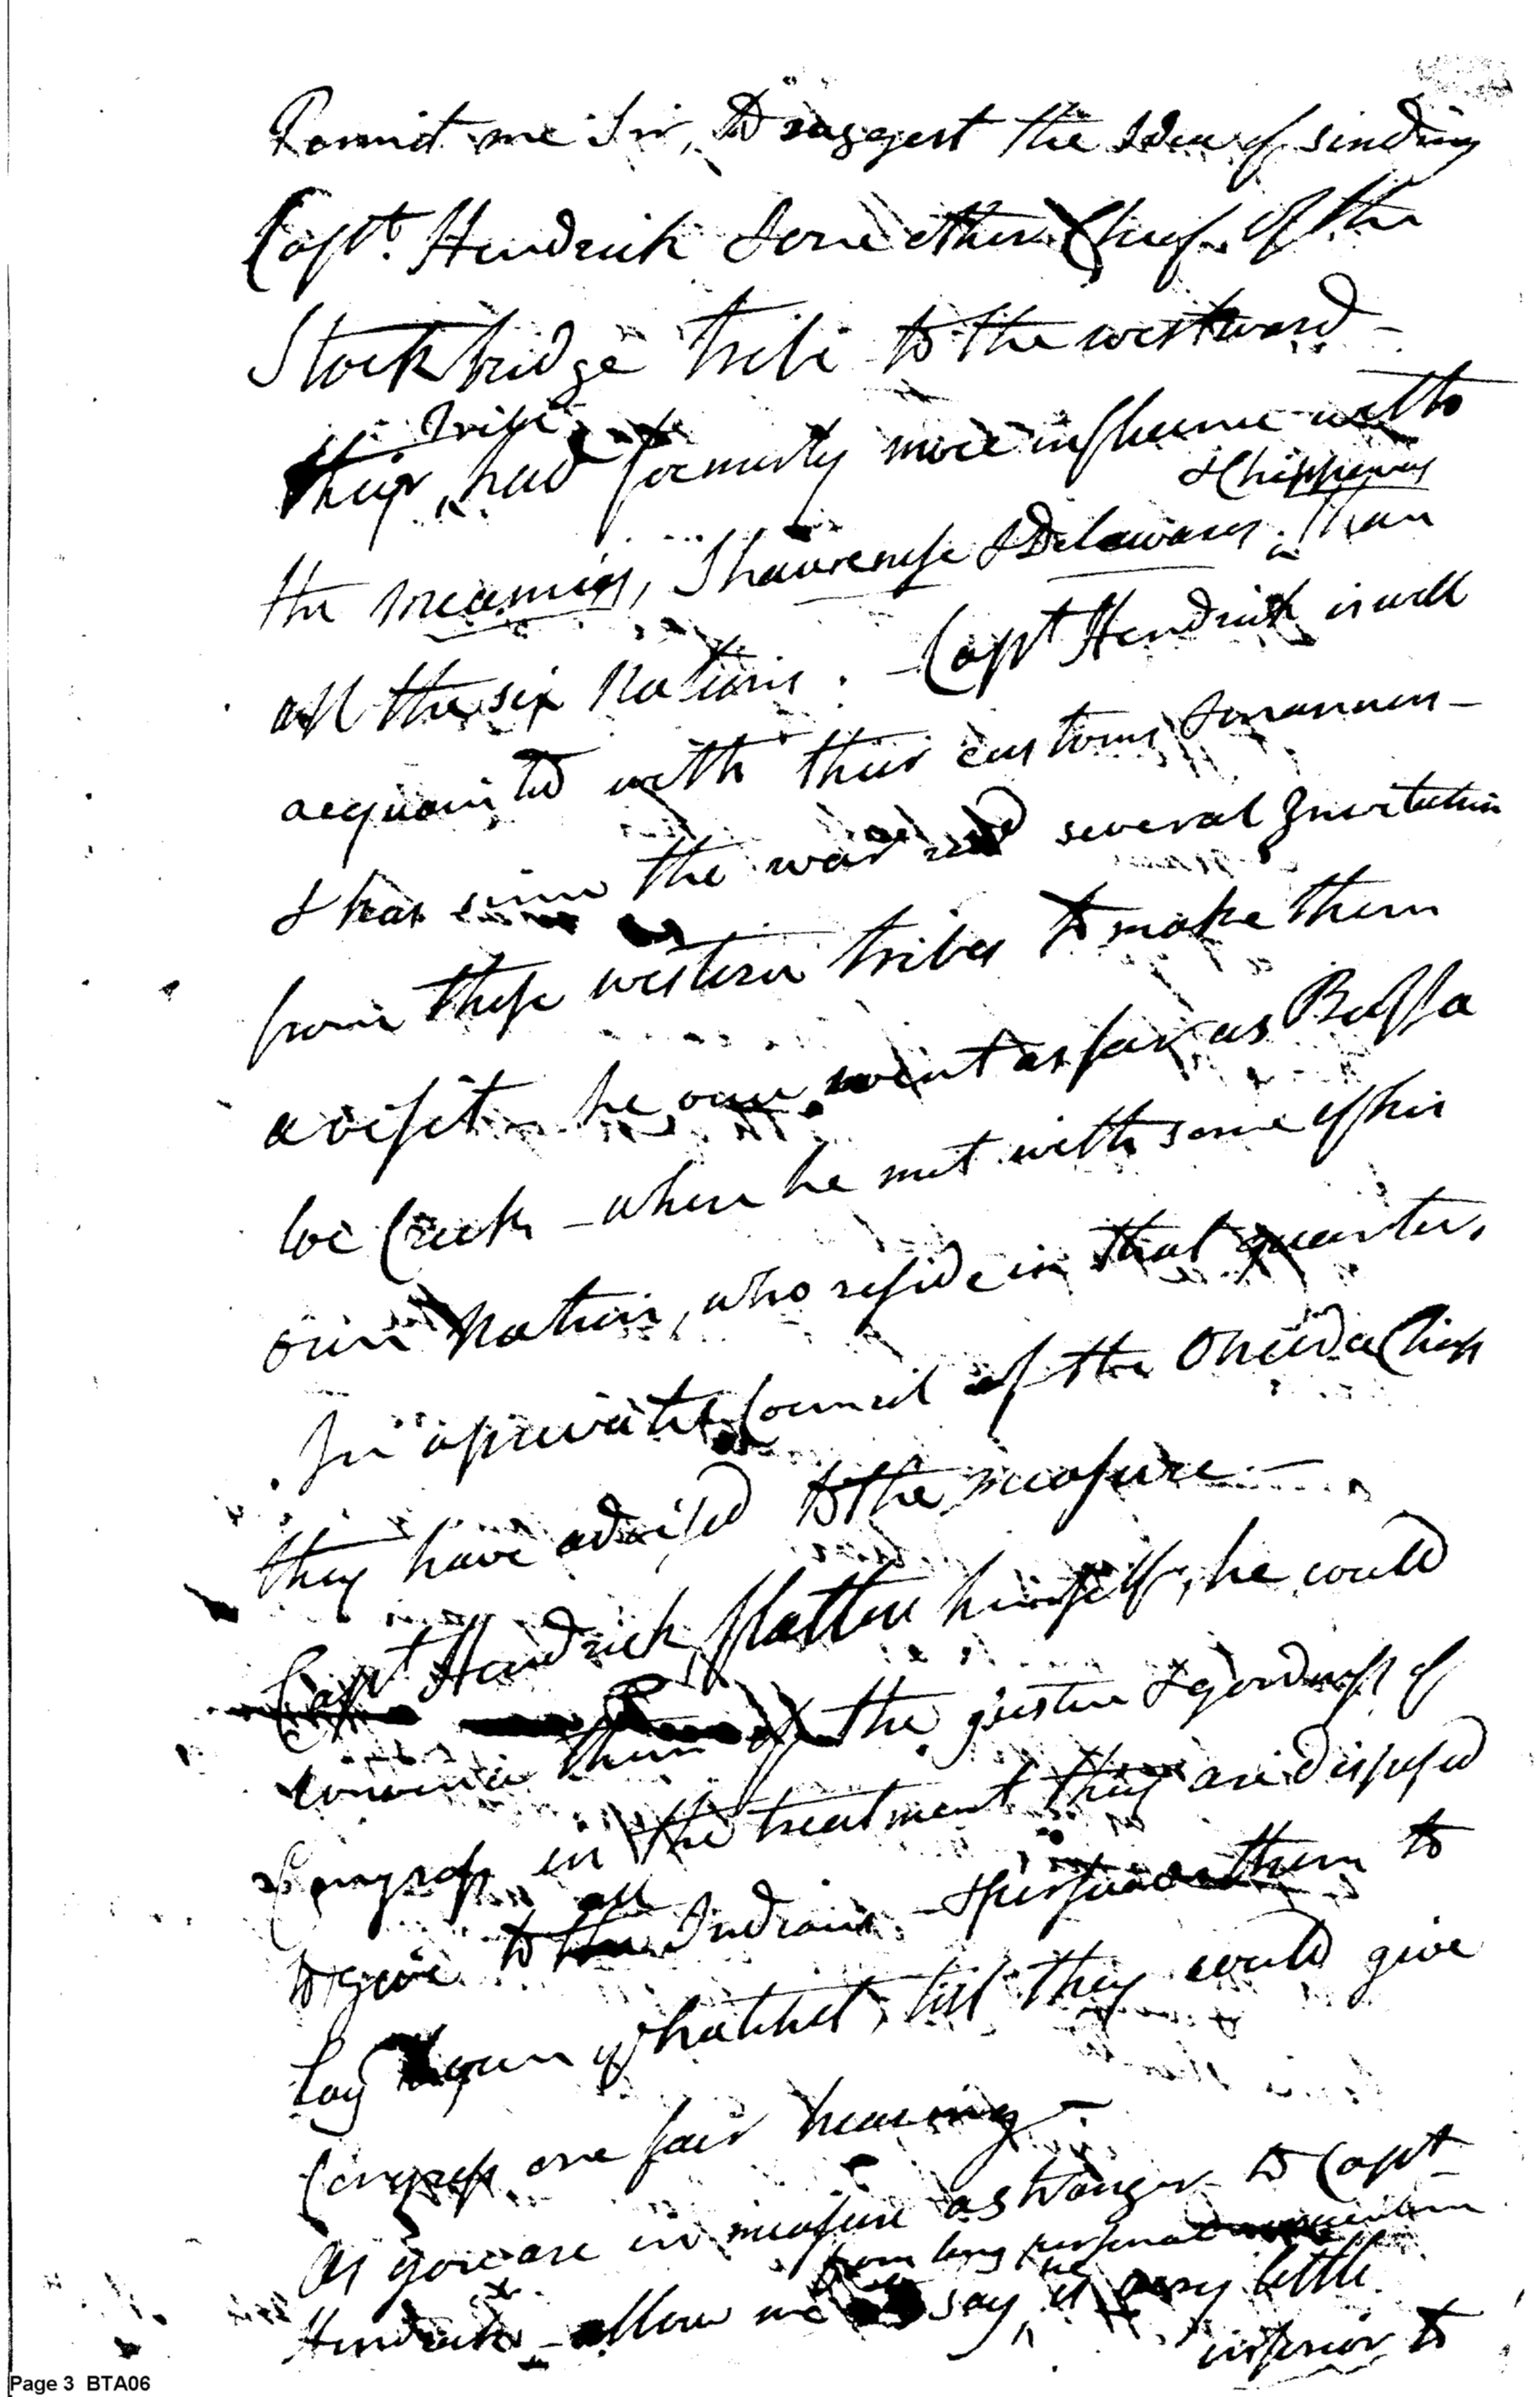 Permit me Sir, to suggest the Idea of sending
Capt. Hendrick & one other Chief of the
Stockbridge tribe to the westward –
their Tribe had formerly more influence with
the Meamies, Shawenese & Delawares & Chippeways than
all the six Nations. – Capt Hendrick is well
acquainted with their customs & manners –
& has since the war had several Invitations
from these western tribes to make them
a visit – he once went as far as Buffa
loe Creek – where he met with some of his
own Nation, who reside in that quarter.
In a private Council of the Oneida Chiefs
they have advised to the measure –
Capt Hendrick flatters himself, he could
convince them of the justice & goodness of
Congress in the treatment they are disposed
to give to the all Indians – & persuade them to
Lay down ye hatchet, till they could give
Congress one fair hearing –
As you are in measure a stranger to Capt
from long personal
Hendrick – allow me to say, he is very little
inferior to
Page 3 BTA06